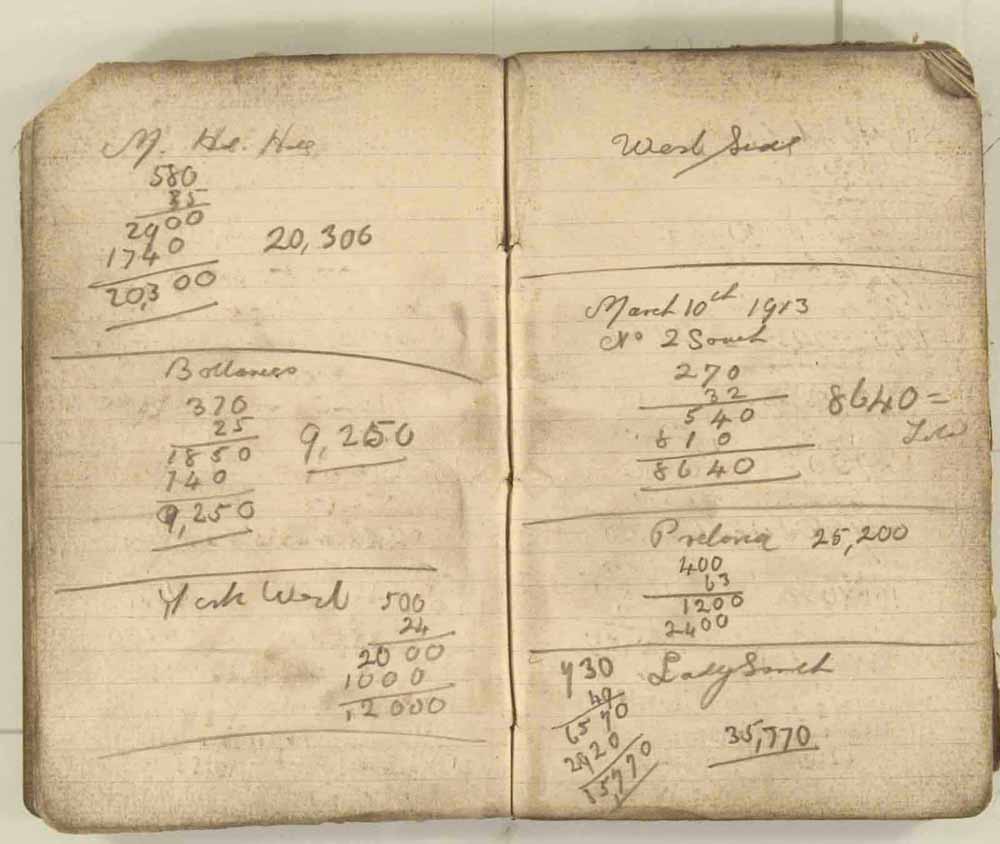 M.
580
35
2900
1740
20,300
20,306
370
25
1850
740
9,250
9,250
500
24
2000
1000
12000
West Side
March 10th 1913
No 2 South
270
32
540
810
8640
8640 =
Pretoria 25,200
400
63
1200
2400
730 LadySmith
49
6570
2920
35,770
35,770